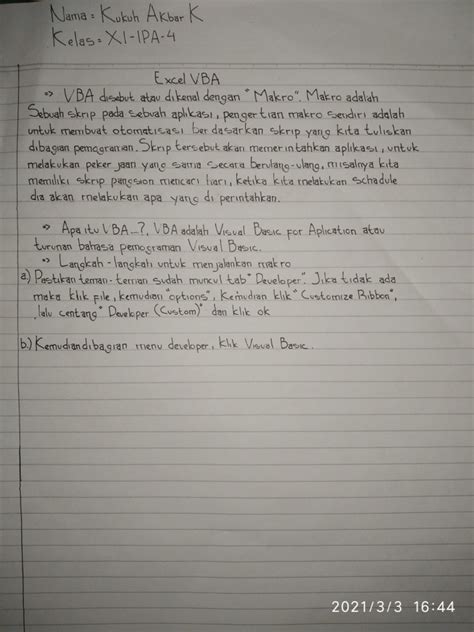 Nama = Kukuh Akbar K
Kelas = XI-IPA-4
Excel VBA
=> VBA disebut atau dikenal dengan "Makro". Makro adalah
Sebuah skrip pada sebuah aplikasi, pengertian makro sendiri adalah
untuk membuat otomatisasi berdasarkan skrip yang kita tuliskan
dibagian pemograman. Skrip tersebut akan memerintahkan aplikasi, untuk
melakukan pekerjaan yang sama secara berulang-ulang, misalnya kita
memiliki skrip pangsion mencari hari, ketika kita melakukan schadule
dia akan melakukan apa yang di perintahkan.
=> Apa itu VBA...?, VBA adalah Visual Basic for Aplication atau
turunan bahasa pemograman Visual Basic.
=> Langkah-langkah untuk menjalankan makro
a.) Pastikan teman-teman sudah muncul tab "Developer". Jika tidak ada
maka klik file, kemudian "options", Kemudian klik "Customize Ribbon",
, lalu centang "Developer (Custom)" dan klik ok
b.) Kemudian dibagian menu developer, klik Visual Basic.
2021/3/3 16:44